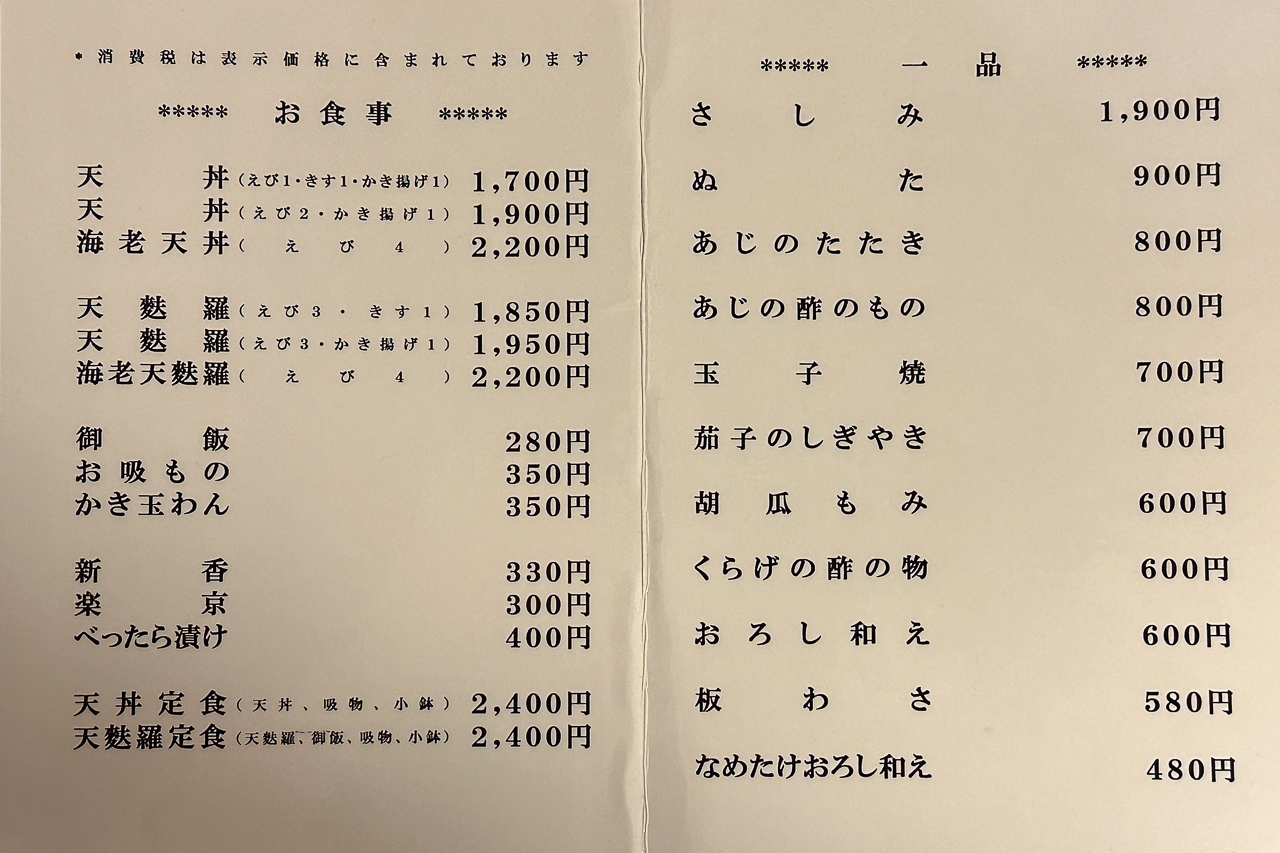 * 消費税は表示価格に含まれております
***** お食事 *****
天丼(えび1・きす1・かき揚げ1) 1,700円
天丼(えび2・かき揚げ1) 1,900円
海老天丼(えび4) 2,200円
天麩羅(えび3・きす1) 1,850円
天麩羅(えび3・かき揚げ1) 1,950円
海老天麩羅(えび4) 2,200円
御飯 280円
お吸もの 350円
かき玉わん 350円
新香 330円
楽京 300円
べったら漬け 400円
天丼定食(天丼、吸物、小鉢) 2,400円
天麩羅定食(天麩羅、御飯、吸物、小鉢) 2,400円
***** 一品 *****
さしみ 1,900円
ぬた 900円
あじのたたき 800円
あじの酢のもの 800円
玉子焼 700円
茄子のしぎやき 700円
胡瓜もみ 600円
くらげの酢の物 600円
おろし和え 600円
板わさ 580円
なめたけおろし和え 480円